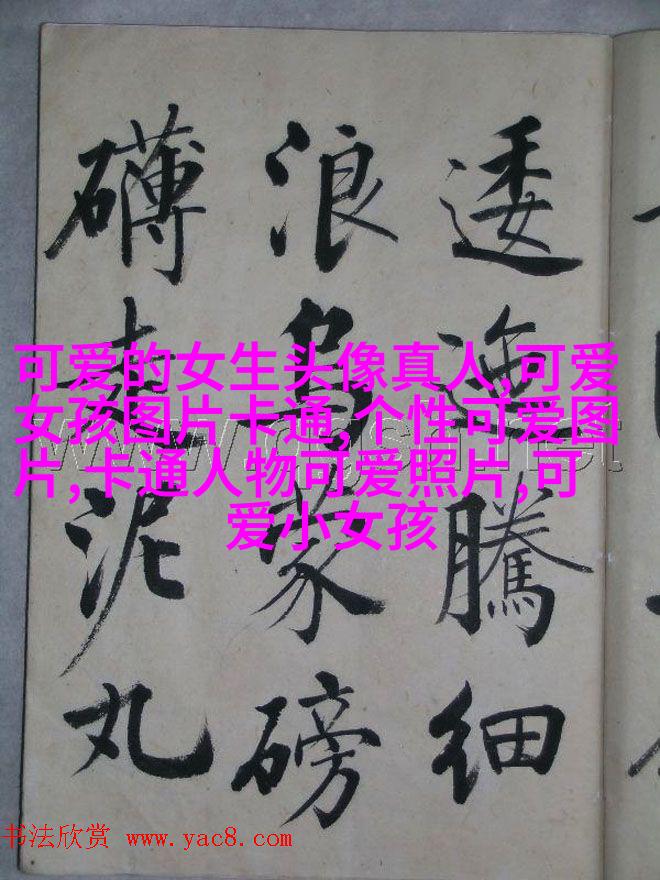 逶迤騰细
浪乌蒙磅
礴走泥丸
可爱的女生头像真人,可爱
女孩图片卡通,个性可爱图
片,卡通人物可爱照片,可
爱小女孩
书法欣赏 www.yac8.com